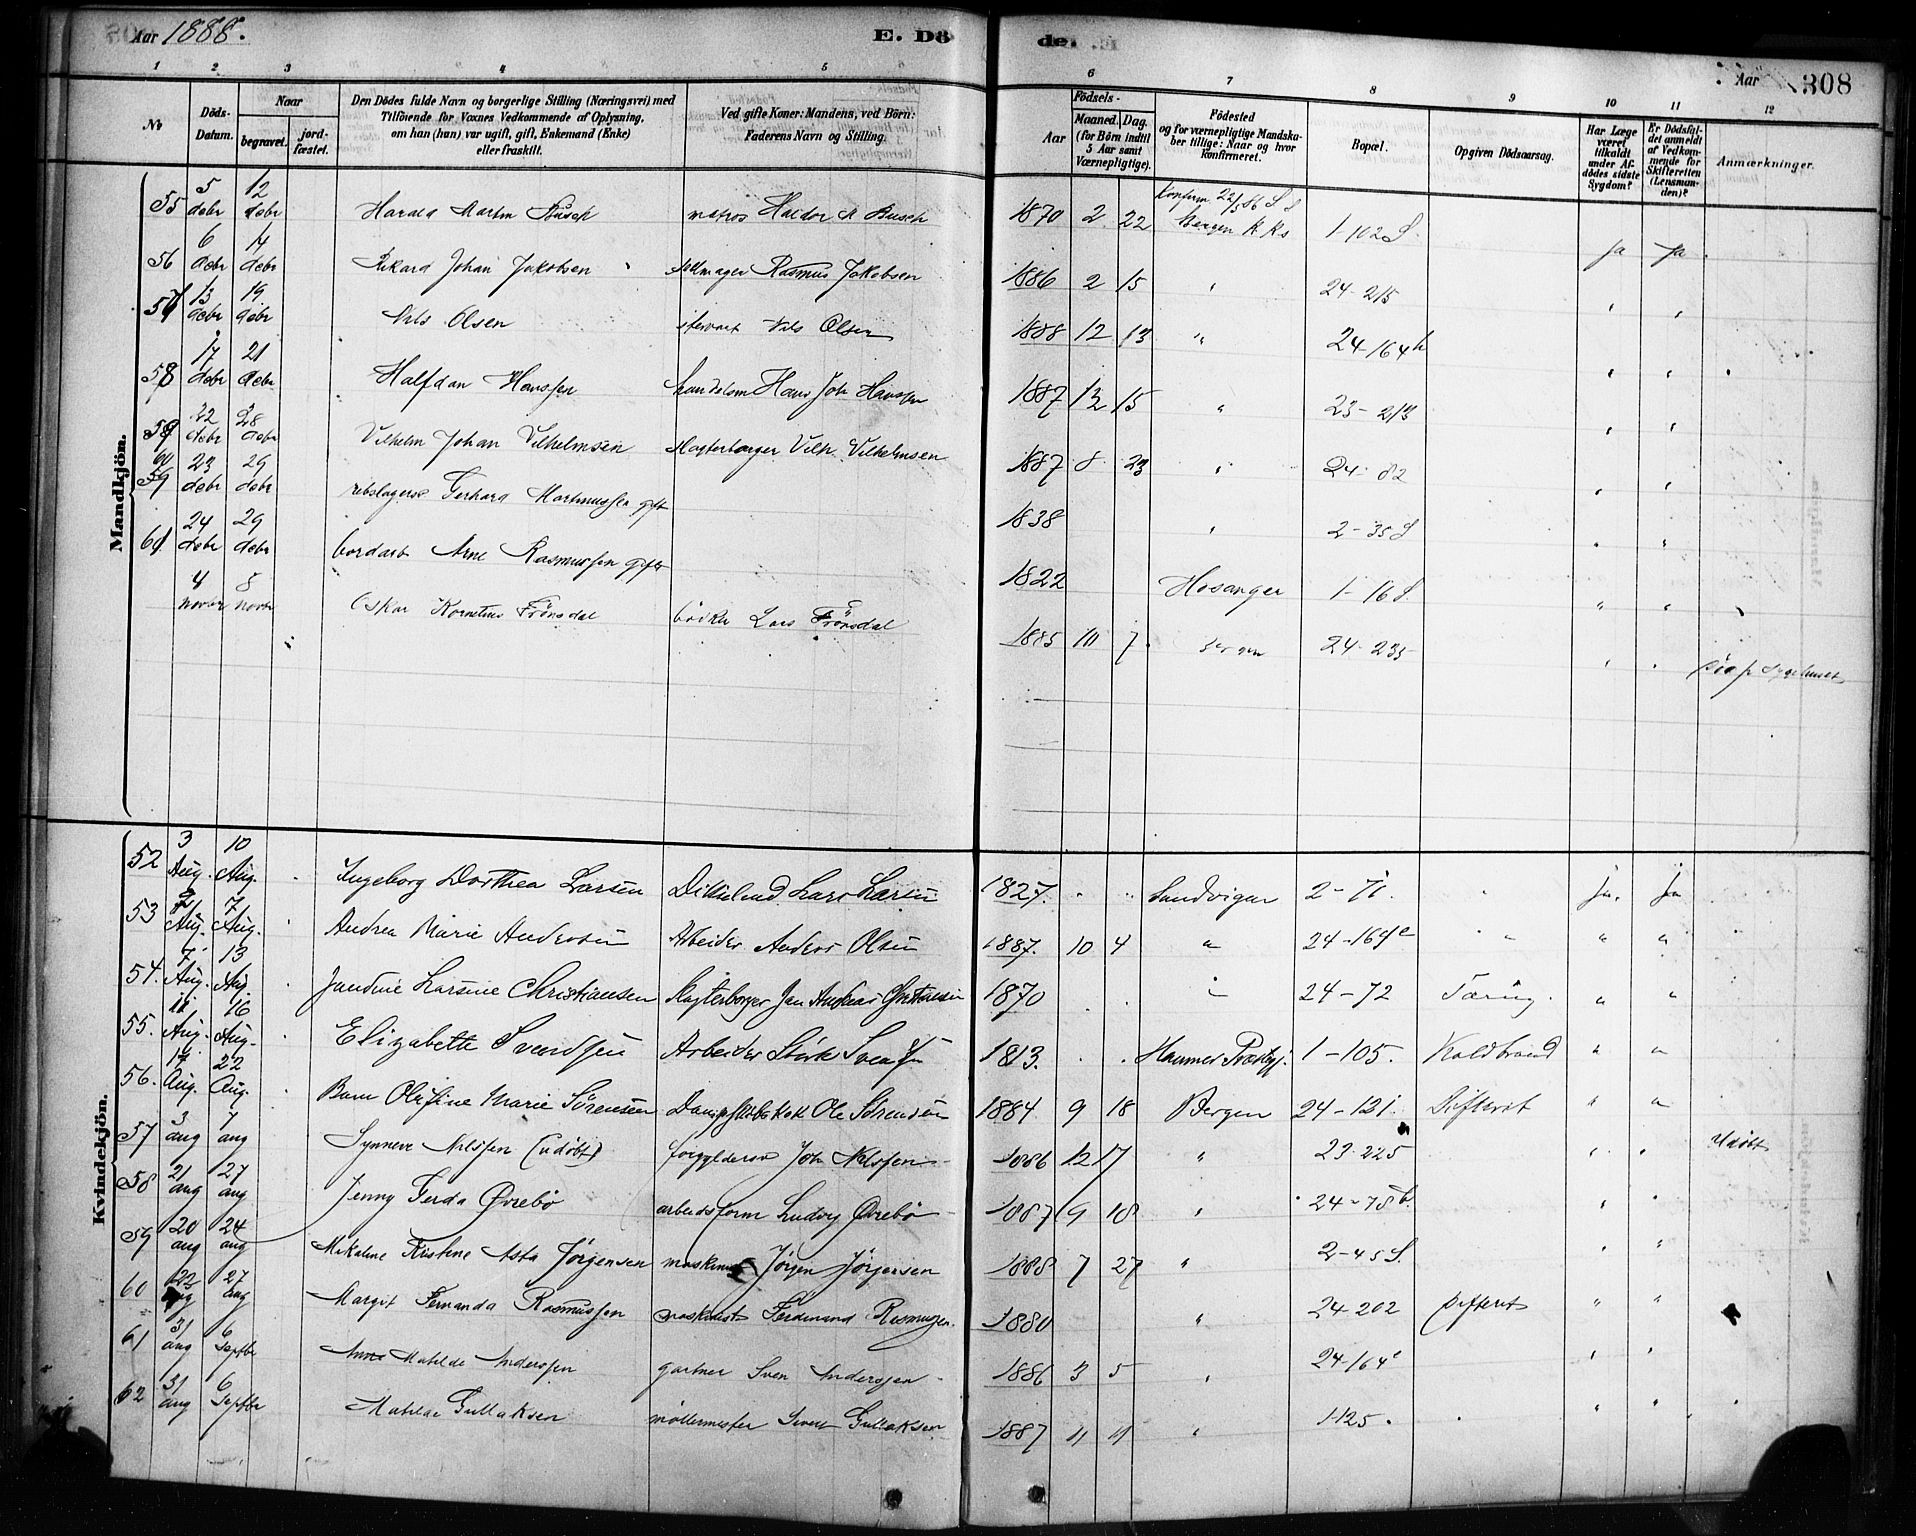 Aar 1888.
E. Dö
der E.
Aar 308
1 2 3 4 5 6 7 8 9 10 11 12
No
Döds-Datum.
Naar
begravet.
jord-fæstet.
Den Dödes fulde Navn og borgerlige Stilling (Næringsvei) med
Tilföiende for Voxnes Vedkommende af Oplysning,
om han (hun) var ugift, gift, Enkemand (Enke)
eller fraskilt.
Ved gifte Koner: Mandens, ved Börn:
Faderens Navn og Stilling.
Födsels-
Aar
Maaned. Dag.
(for Börn indtil
5 Aar samt
Værnepligtige).
Födested
og for værnepligtige Mandska-
ber tillige: Naar og hvor
konfirmeret.
Bopæl.
Opgiven Dödsaarsag.
Har Læge
været
tilkaldt
under Af-
dödes sidste
Sygdom?
Er Dödsfal-
det anmeldt
af Vedkom-
mende for
Skifteretten
(Lensman-
den)?
Anmærkninger.
Mandkjön.
55 5 debr 12 debr Harald Martin Busch matros Haldor M Busch 1870 2 22 Konfirm 22/5 86 Bergen K Ks 1-102 S. ja ja
56 6 debr 14 debr Rikard Johan Jakobsen Rasmus Jakobsen 1886 2 15 " 24-215 " "
57 13 debr 19 debr Nils Olsen stervart Nils Olsen 1888 12 13 " 24-164 h " "
58 17 debr 21 debr Halfdan Hanssen handelsm Hans Joh Hanssen 1887 12 15 " 23-213 " "
59 22 debr 28 debr Vilhelm Johan Vilhelmsen Slagterborger Vilh. Vilhelmsen 1887 8 23 " 24-82 " "
60 59 23 debr 29 debr rebslagersv Gerhard Martinussen gift 1838 " 2-35 S " "
61 24 debr 29 debr Arne Rasmussen gift 1822 Hosanger 1-16 S. " "
4 novbr 8 novbr Oskar Kornelius Frönsdal bödker Lars Frönsdal 1885 10 7 Bergen 24-235 " " Sygehuset
Kvindekjön.
52 3 Aug. 10 Aug. Ingeborg Dorthea Larsen Lars Larsen 1827. " " Sandvigen 2-71. " ja. ja
53 2 Aug. 7 Aug. Andrea Marie Andersen Arbeider Anders Olsen 1887. 10 4 " 24-164 e " " "
54. 7 Aug. 13 Aug. Jandine Larsine Christiansen Slagterborger Jan Andreas Christiansen 1870 " 24-72 Tæring. " "
55. 11 Aug. 16 Aug. Elizabeth Svendsen Arbeider Störk Svendsen 1813. Hammer Præstgj. 1-105. Koldbrand " "
56. 17 Aug. 22 Aug. Barn Olufine Marie Sörensen Dampskibskok Ole Sörensen 1884 9 18 Bergen 24-121. Difterit " "
57 3 aug 7 aug Synneve Nilssen (udöbt) forgyldersv Joh Nilssen 1886 12 17 " 23-225 " " Udöbt
58 21 aug 27 aug Jenny Gerda Øvrebø arbeidsform Ludvig Øvrebø 1887 9 18 " 24-78 b. " "
59 20 aug 24 aug Mikaline Kristine Asta Jørgensen maskinist Jørgen Jørgensen 1888 7 27 " 2-45 S. " "
60 22 aug 27 aug Margit Fernanda Rasmussen maskinist Ferdinand Rasmussen. 1880 " 24-202 Difterit " "
61 31 aug 6 Septbr Anne Matilde Anderssen gartner Sven Anderssen 1886 3 5 " 24-164 e " "
62 31 aug 6 Septbr Matilde Gullaksen möllermester Sivert Gullaksen 1887 11 11 " 1-125. " "